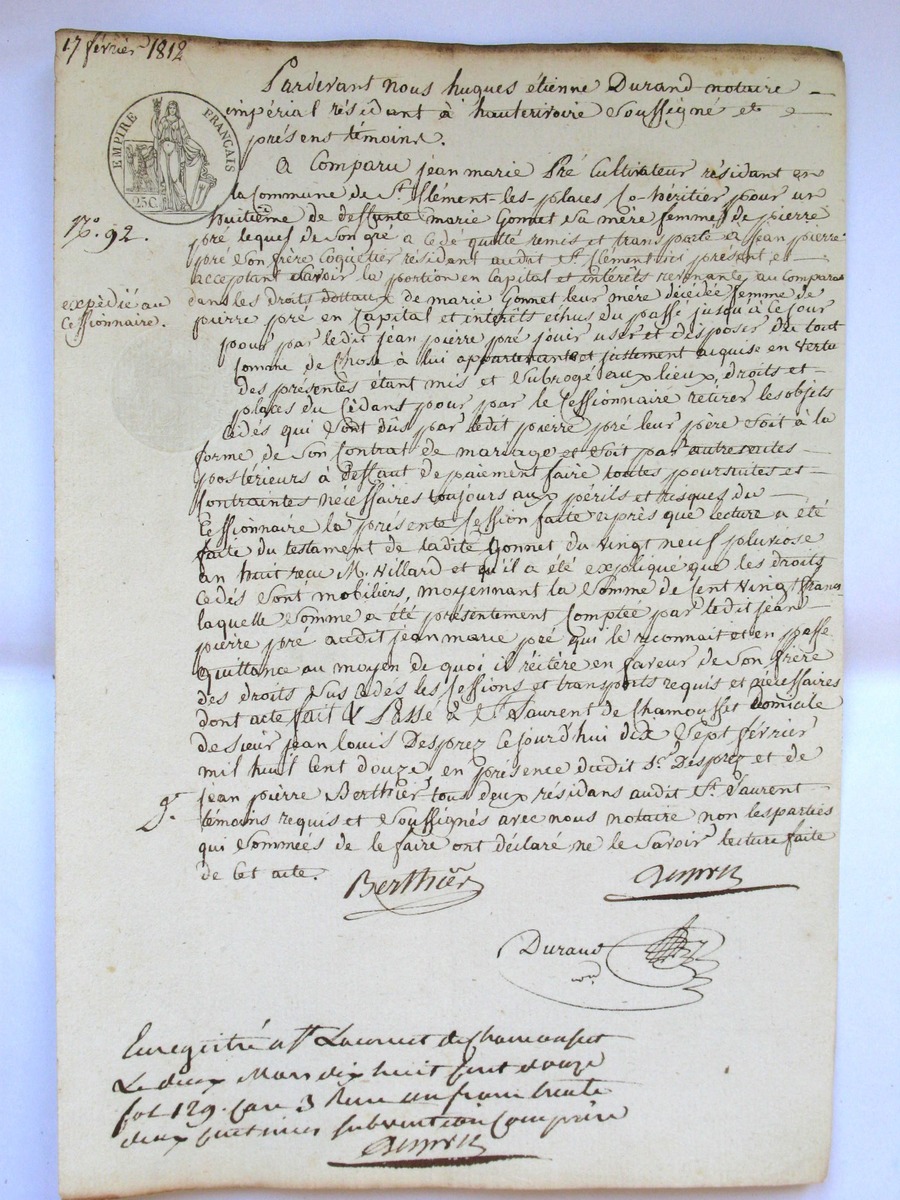 17 février 1812
Pardevant nous hugues étienne Durand notaire
impérial résidant à hauterivoire soussigné et
présens témoins.
EMPIRE FRANÇAIS
25C.
A Comparu jean marie Pré Cultivateur résidant en
la Commune de St. Clément-les-places Co-héritier pour un
huitième de deffunte marie Gonnet sa mère femme de pierre
No. 92.
pré lequel de son gré a cédé quitté remis et transporté a jean pierre
pré son frère Coquetier résidant audit St. Clément ici présent et
acceptant savoir la portion en Capital et intérêts revenante au Comparant
expédié au
Cessionnaire.
dans les droits dottaux de marie Gonnet leur mère décédée femme de
pierre pré en Capital et intérêts échus du passé jusqu'à ce jour
pour par ledit jean pierre pré jouir user et disposer du tout
Comme de Chose à lui appartenante et justement acquise en vertu
des présentes étant mis et subrogé aux lieux, droits et
places du Cédant pour par le Cessionnaire retirer les objets
Cédés qui sont dûs par ledit pierre pré leur père soit à la
forme de son Contrat de mariage et soit par autres
postérieurs à deffaut de paiement faire toutes poursuites et
Contraintes nécessaires toujours aux périls et risques du
Cessionnaire la présente Cession faite après que lecture a été
faite du testament de ladite Gonnet du vingt neuf pluviose
an huit reçu Me. Villard et qu'il a été expliqué que les droits
Cédés sont mobiliers, moyennant la somme de Cent vingt francs
laquelle somme a été présentement Comptée par ledit jean
pierre pré audit jean marie pré qui le reconnait et en passe
quittance au moyen de quoi il réitère en faveur de son frère
des droits sus cédés les Cessions et transports requis et nécessaires
dont acte fait & Passé à St. Laurent de Chamousset domicile
de sieur jean louis Desprez Cejourd'hui dix sept février
mil huit Cent douze en présence dudit Sr. Desprez et de
jean pierre Berthier tous deux résidans audit St. Laurent
témoins requis et soussignés avec nous notaire non les parties
qui sommées de le faire ont déclaré ne le savoir lecture faite
de Cet acte.
Berthier Desprez
Durand
Enregistré à St. Laurent de Chamousset
Le deux Mars dix huit Cent douze
fol 129. Case 3 Reçu un franc trente
deux Centimes subvention Comprise
Desprez